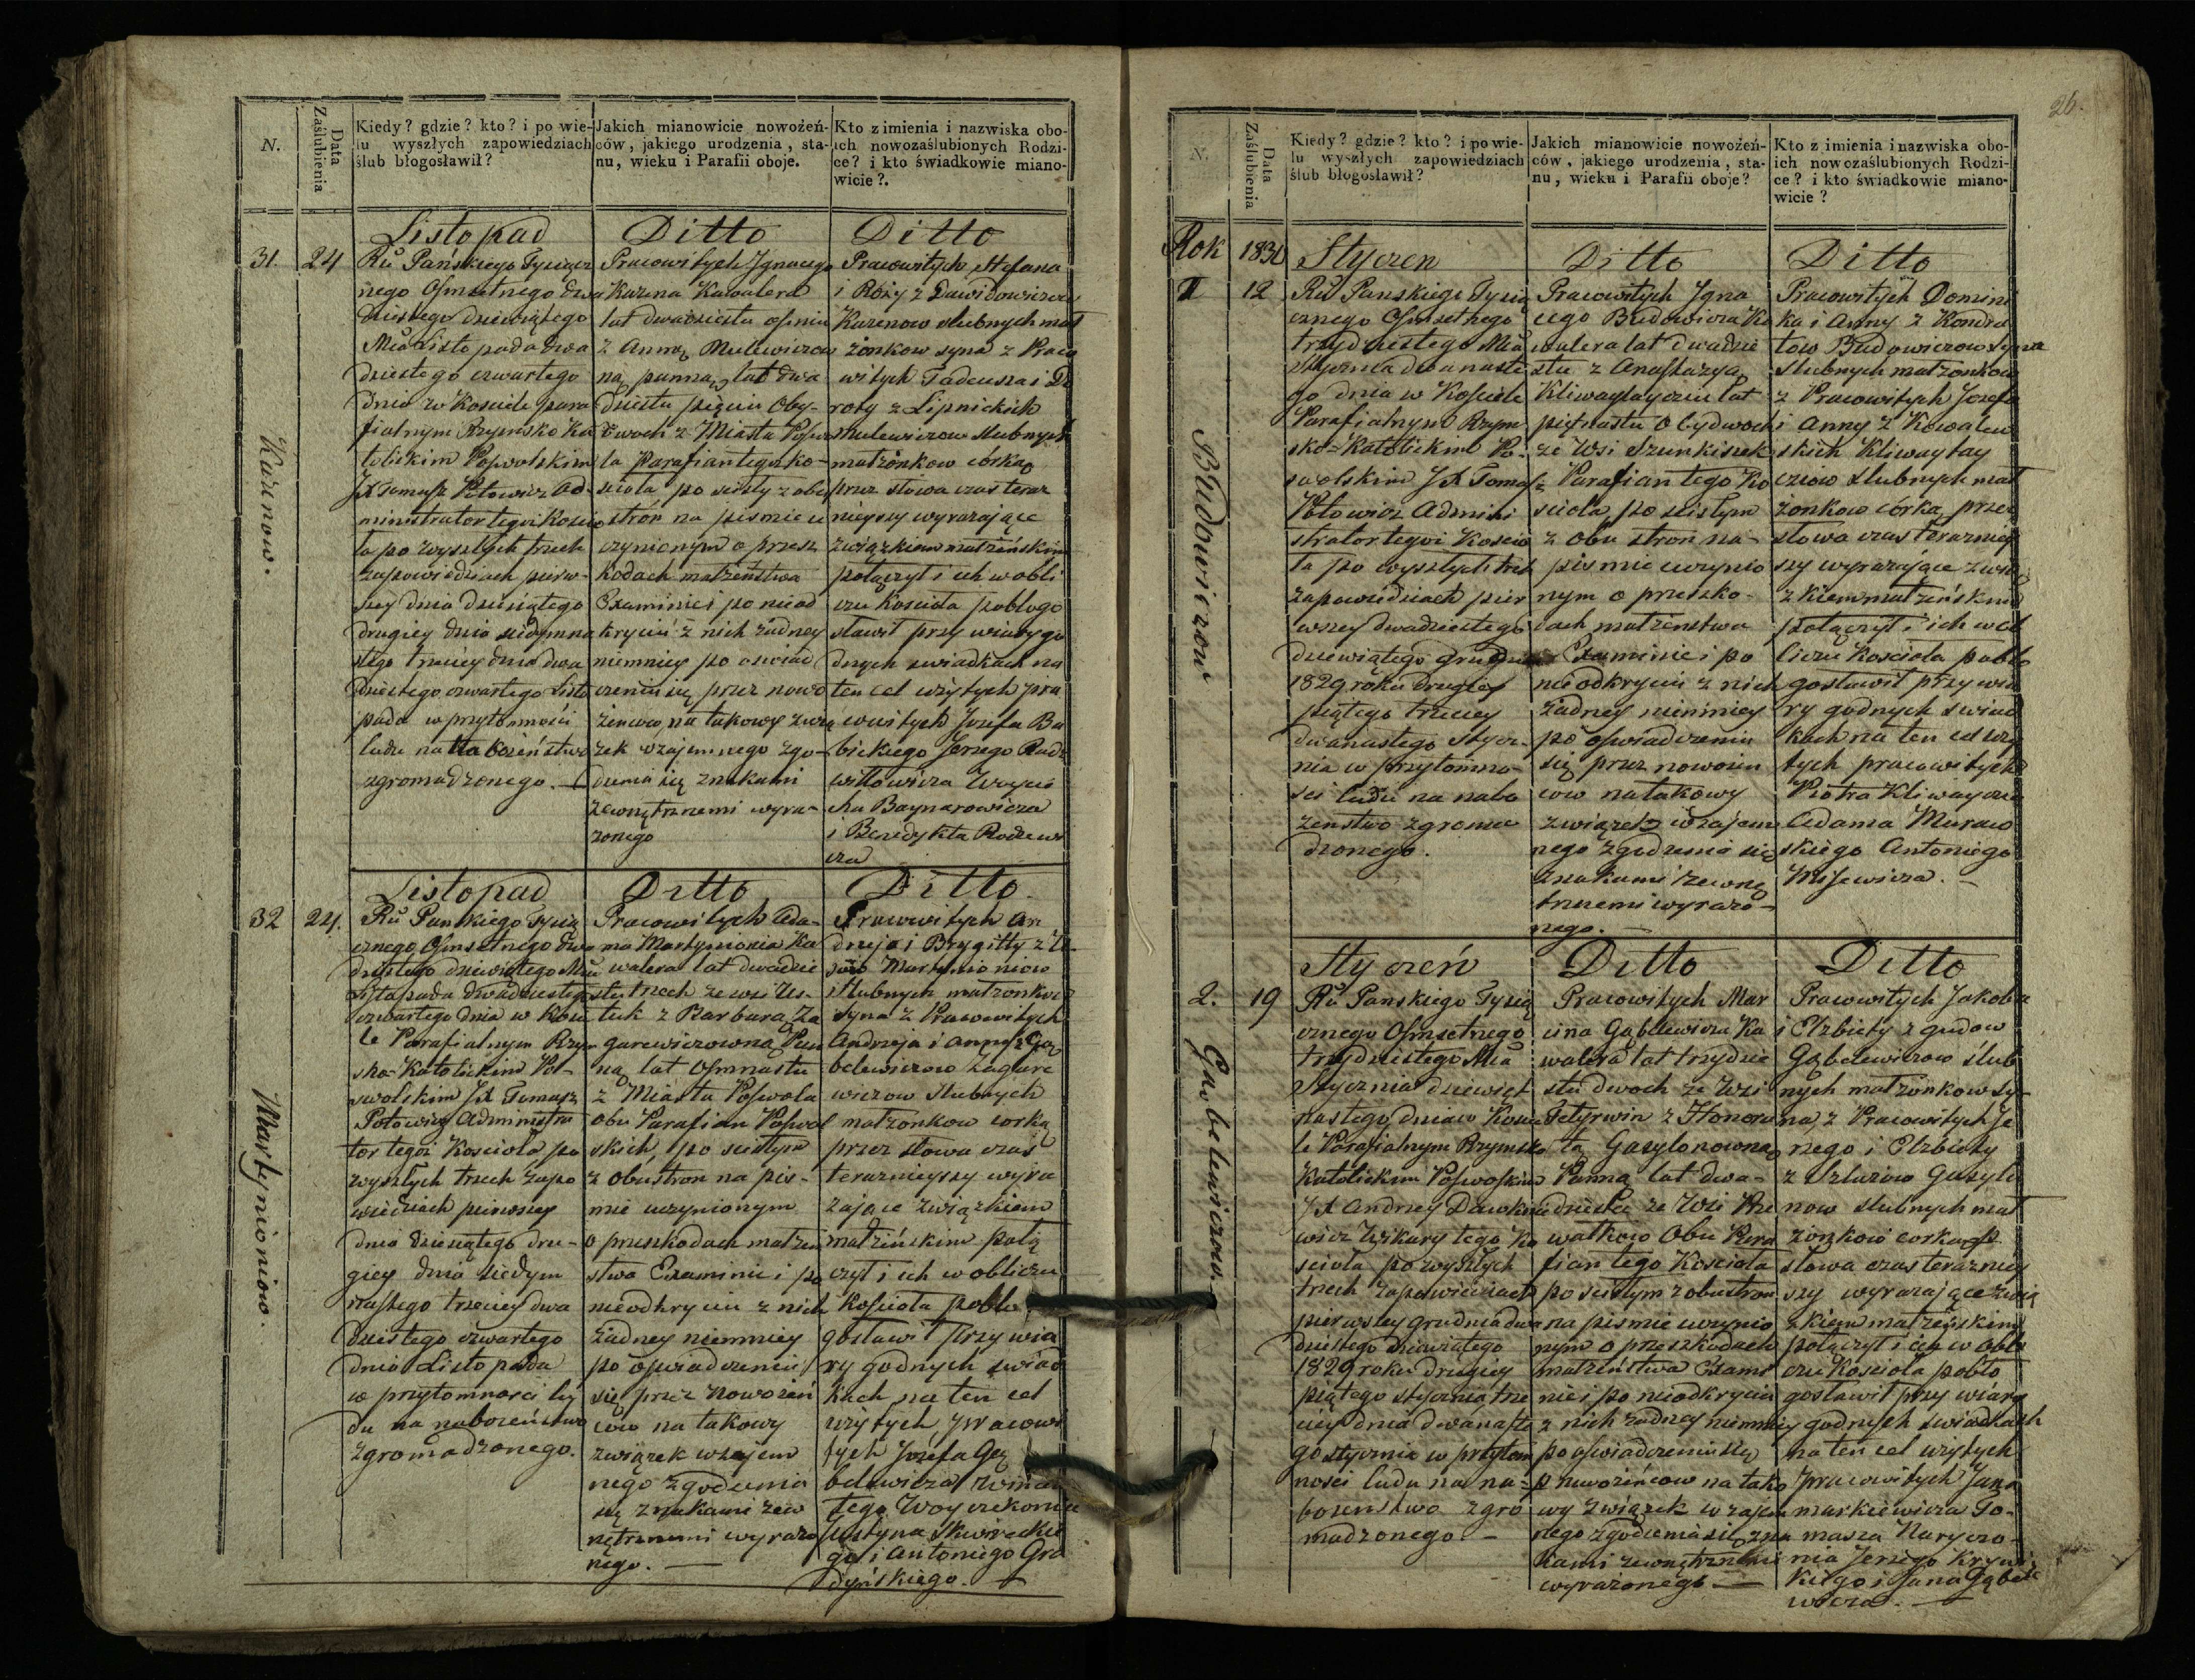 N.
Data
Zaślubienia
Kiedy? gdzie? kto? i po wie-
lu wyszłych zapowiedziach
ślub błogosławił?
Jakich mianowicie nowożeń-
ców, jakiego urodzenia, sta-
nu, wieku i Parafii oboje.
Kto z imienia i nazwiska obo-
ich nowozaślubionych Rodzi-
ce? i kto świadkowie miano-
wicie?.
31.
24
Kuzenow.
Listopad
Ru Pańskiego Tysiącz
nego Osmsetnego dwu
dziestego dziewiątego
Mca Listopada dwa
dziestego czwartego
dnia w Kosciele para
fialnym Rzymsko Ka
tolickim Poswolskim
JX Tomasz Połowicz Ad-
ministrator tegoż Koscio
ła po wyszłych trzech
zapowiedziach pierw-
szey dnia dziesiątego
drugiey dnia siedymna
stego trzeciey dnia dwa
dziestego czwartego Listo
pada w przytomności
ludu na Nabożeństwo
zgromadzonego.
Ditto
Pracowitych Jgnacego
Kuzena Kawalera
lat dwadziestu osmiu
z Anną Mulewiczow
ną panną lat dwa
dziestu pięciu Oby-
dwoch z Miasta Poswo
la Parafian tegoż ko-
scioła, po scisły z obu
stron na pismie u
czynionym o przesz
kodach małżeństwa
Examinie i po nieod
kryciu z nich żadney
niemniey po oswiad
czeniu się przez nowo
żencow, na takowy zwią
zek wzajemnego zgo-
dzenia się znakami
zewnętrznemi wyra-
zonego
Ditto
Pracowitych Stefana
i Róży z Dawidowiczow
Kuzenow slubnych mał
żonkow syna z Praco
witych Tadeusza i Do
roty z Lipnickich
Mulewiczow slubnych
małżonkow corką
przez słowa czas teraz
nieyszy wyrażające
związkiem małżeńskim
połączył i ich w obli
czu Koscioła pobłogo
sławił przy wiary go
dnych swiadkach na
ten cel użytych pra
cowitych Jozefa Ba
bickiego Jerzego Radz
witowicza Woycie
cha Baynarowicza
i Benedykta Rodzewi
cza
32
24.
Martynionow.
Listopad
Ru Panskiego Tysią
cznego Osmsetnego dwu
dziestego dziewiątego Mca
Listopada dwudziestego
czwartego dnia w Koscie
le Parafialnym Rzym
sko-Katolickim Po-
swolskim JX Tomasz
Połowicz Administra
tor tegoż Kosciola po
wyszłych trzech zapo
wiedziach pierwszey
dnia dziesiątego dru-
giey dnia siedym
nastego trzeciey dwa
dziestego czwartego
dnia Listopada
w przytomnosci lu
du na nabożeństwo
zgromadzonego.
Ditto
Pracowitych Ada-
ma Martynionia Ka
walera lat dwadzie
stu trzech ze wsi Us-
tuk z Barbarą Za
garewiczowną Pan
ną lat Osmnastu
z Miasta Poswola
obu Parafian Poswol
skich, po scisłym
z obustron na pis-
mie uczynionym
o przeszkodach małżeń
stwa Examinie i po
nieodkryciu z nich
żadney niemniey
po oswiadczeniu
się przez nowożeń
cow na takowy
związek wzajem
nego zgodzenia
się znakami zew
nętrznemi wyrażo
nego.
Ditto.
Pracowitych An
drzeja i Brygitty z
Martynionow
slubnych małzonkow
syna z Pracowitych
Andrzeja i Anny z Gą
belewiczow Zagare
wiczow slubnych
małzonkow corką
przez słowa czas
teraznieyszy wyra
żające związkiem
małżeńskim połą
czył i ich w obliczu
Kościoła pobło
gosławił przy wia
ry godnych swiad
kach na ten cel
użytych pracowi
tych Jozefa Gą
belewicza
tego Woyczekonia
Justyna Skwireckie
go i Antoniego Gra
dyńskiego.
26.
N.
Data
Zaślubienia
Kiedy? gdzie? kto? i po wie-
lu wyszłych zapowiedziach
ślub błogosławił?
Jakich mianowicie nowożeń-
ców, jakiego urodzenia, sta-
nu, wieku i Parafii oboje?
Kto z imienia i nazwiska obo-
ich nowozaślubionych Rodzi-
ce? i kto świadkowie miano-
wicie?
Rok
1830
1
12
Budowiczow
Styczen
Ru Panskiego Tysią
cznego Osmsetnego
trzydziestego Mca
stycznia dwunaste
go dnia w Kosciele
Parafialnym Rzym
sko-Katolickim Po-
swolskim JX Tomasz
Połowicz Admini
strator tegoż Koscio
ła po wyszłych trzech
zapowiedziach pier
wszey dwadziestego
dziewiątego grudnia
1829 roku drugiey
piątego trzeciey
dwunastego stycz-
nia w przytomno-
sci ludu na nabo
żenstwo zgroma
dzonego.
Ditto
Pracowitych Jgna
cego Budowicza Ka
walera lat dwadzie
stu z Anastazyą
Kliwaytayciu lat
piętnastu Obydwoch
ze Wsi Szunkiszek
Parafian tego Ko
sciola po scisłym
z obu stron na-
pismie uczynio
nym o przeszko-
dach małżenstwa
Examinie i po
nieodkryciu z nich
żadney niemniey
po oswiadczeniu
się przez nowożeń
cow na takowy
związek wzajem
nego zgodzenia się
znakami zewnę
trznemi wyrażo-
nego.
Ditto
Pracowitych Domini
ka i Anny z Kondra
tow Budowiczow syna
slubnych małzonkow
z Pracowitych Jozefa
i Anny z Kowalew
skich Kliwaytay
cziow slubnych mał
żonkow córką przez
słowa czas teraźniey
szy wyrażające zwią
zkiem małżeńskim
połączył i ich w ob
liczu Kosciola pobło
gosławił przy wia
ry godnych swiad
kach na ten cel uży
tych pracowitych
Piotra Kliwaycza
Adama Muraw
skiego Antoniego
Misewicza.
2.
19
Gawbelewiczow.
Styczeń
Ru Panskiego Tysią
cznego Osmsetnego
trzydziestego Mca
Stycznia dziewięt
nastego dnia w Koscie
le Parafialnym Rzymsko
Katolickim Poswolskim
JX Andrzey Dawkie
wicz Wikary tego Ko
sciola po wyszłych
trzech zapowiedziach
pierwszey grudnia dwa
dziestego dziewiątego
1829 roku drugiey
piątego stycznia trze
ciey dnia dwanaste
go stycznia w przytom
nosci ludu na na-
bozenstwo zgro
madzonego
Ditto
Pracowitych Mar
cina Gąbelewicza Ka
walera lat trzydzie
stu dwoch ze Wsi
Tetyrwin z Honora
tą Gasylonowną
Panną lat dwa-
dziestu ze Wsi Kre
watkow Obu Para
fian tego Kosciola
po scisłym z obustron
na pismie uczynio
nym o przeszkodach
małżeństwa Exami
nie i po nieodkryciu
z nich żadney niemniey
po oswiadczeniu się
p nowożeńcow na tako
wy związek wzajem
nego zgodzenia się zna
kami zewnętrznemi
wyrażonego
Ditto
Pracowitych Jakoba
i Elzbiety z gudow
Gąbelewiczow slub
nych małżonkow sy-
na, z Pracowitych Je
rzego i Elzbiety
z Szlazow Gasylo
now slubnych mał
żonkow corką p
słowa czas terazniey
szy wyrażające zwią
zkiem małżeńskim
połączył i ich w obli
czu Kosciola pobło
gosławił przy wiary
godnych swiadkach
na ten cel użytych
pracowitych Jana
markiewicza To-
masza Naryczo
nia Jerzego Krzywi
ckiego i Jana Gąbele
wicza.